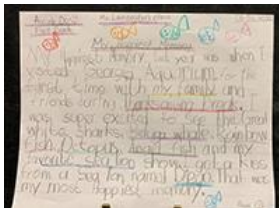 My Happiest Memory
My happiest memory last year was when I
visited Georgia Aquarium for the
first time with my family and
friends during Thanksgiving Break. I
was super excited to see the great
white sharks, beluga whale, Rainbow
fish, Octopus, Angel fish and my
favorite sea lion show. I got a kiss
from a sea lion named that was
my most happiest memory.